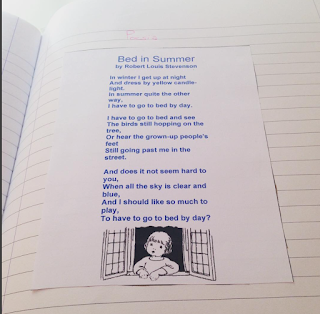 Bed in Summer
by Robert Louis Stevenson
In winter I get up at night
And dress by yellow candle-
light.
In summer quite the other
way,
I have to go to bed by day.
I have to go to bed and see
The birds still hopping on the
tree,
Or hear the grown-up people's
feet
Still going past me in the
street.
And does it not seem hard to
you,
When all the sky is clear and
blue,
And I should like so much to
play,
To have to go to bed by day?